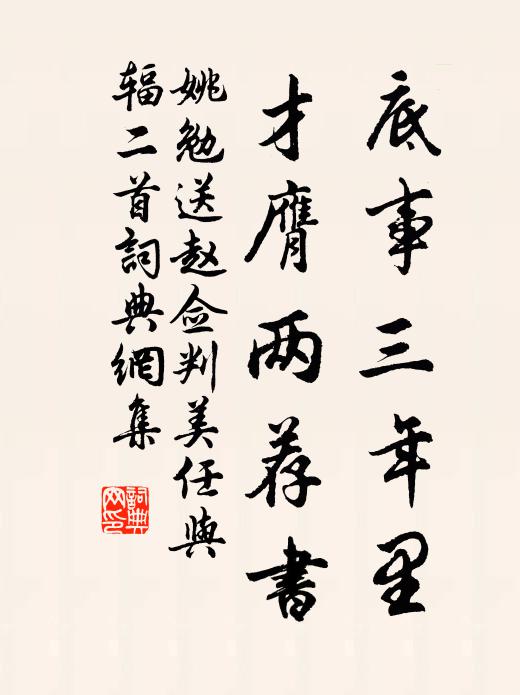 底事三年里
才膺两荐書
姚勉送赵佥判美任與
辐二首詞典網集
詞典
网印